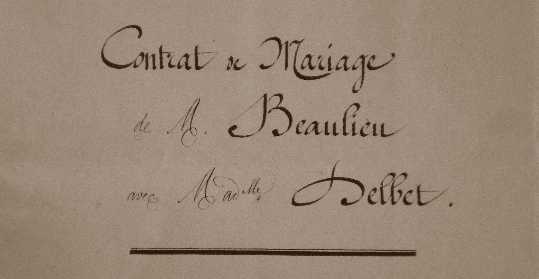 Contrat de Mariage
de M. Beaulieu
avec Mad.lle Delbet.